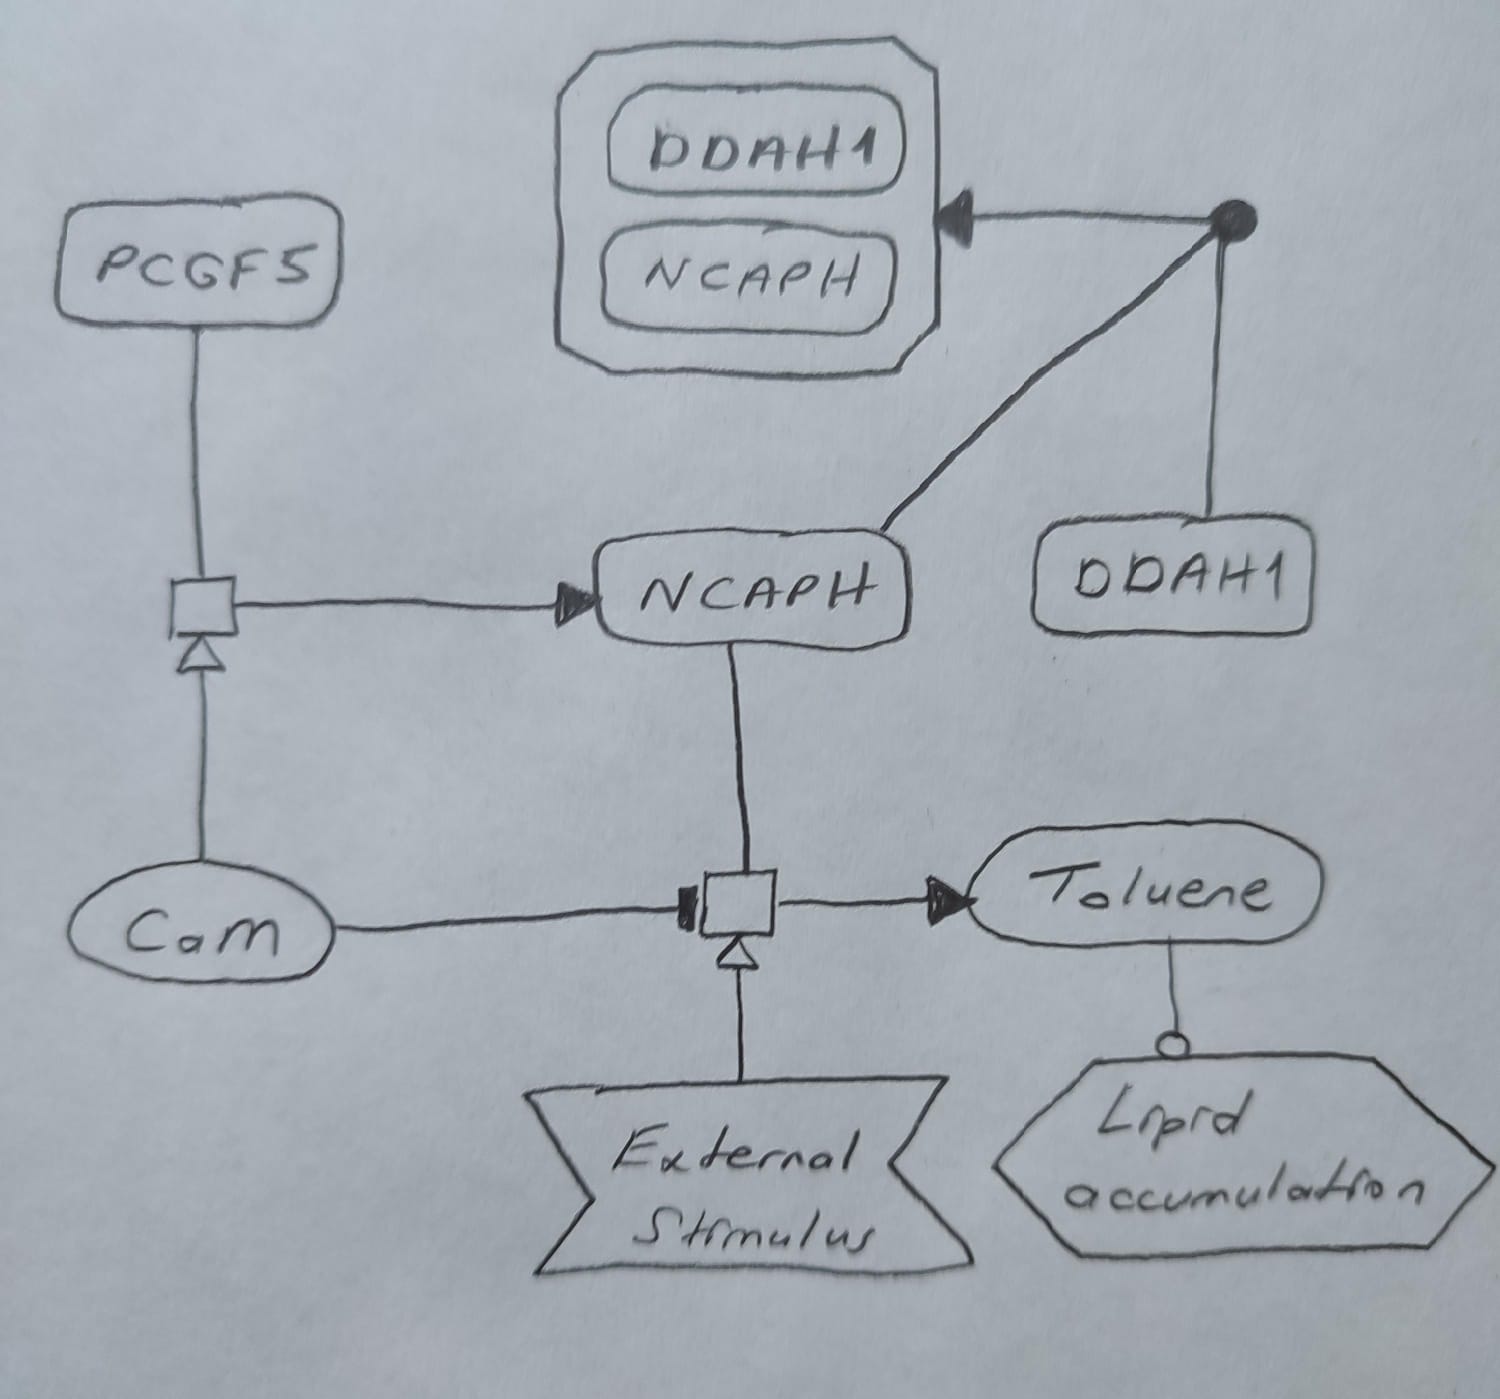 DDAH1
NCAPH
PCGF5
NCAPH
DDAH1
CaM
Toluene
External
Stimulus
Lipid
accumulation